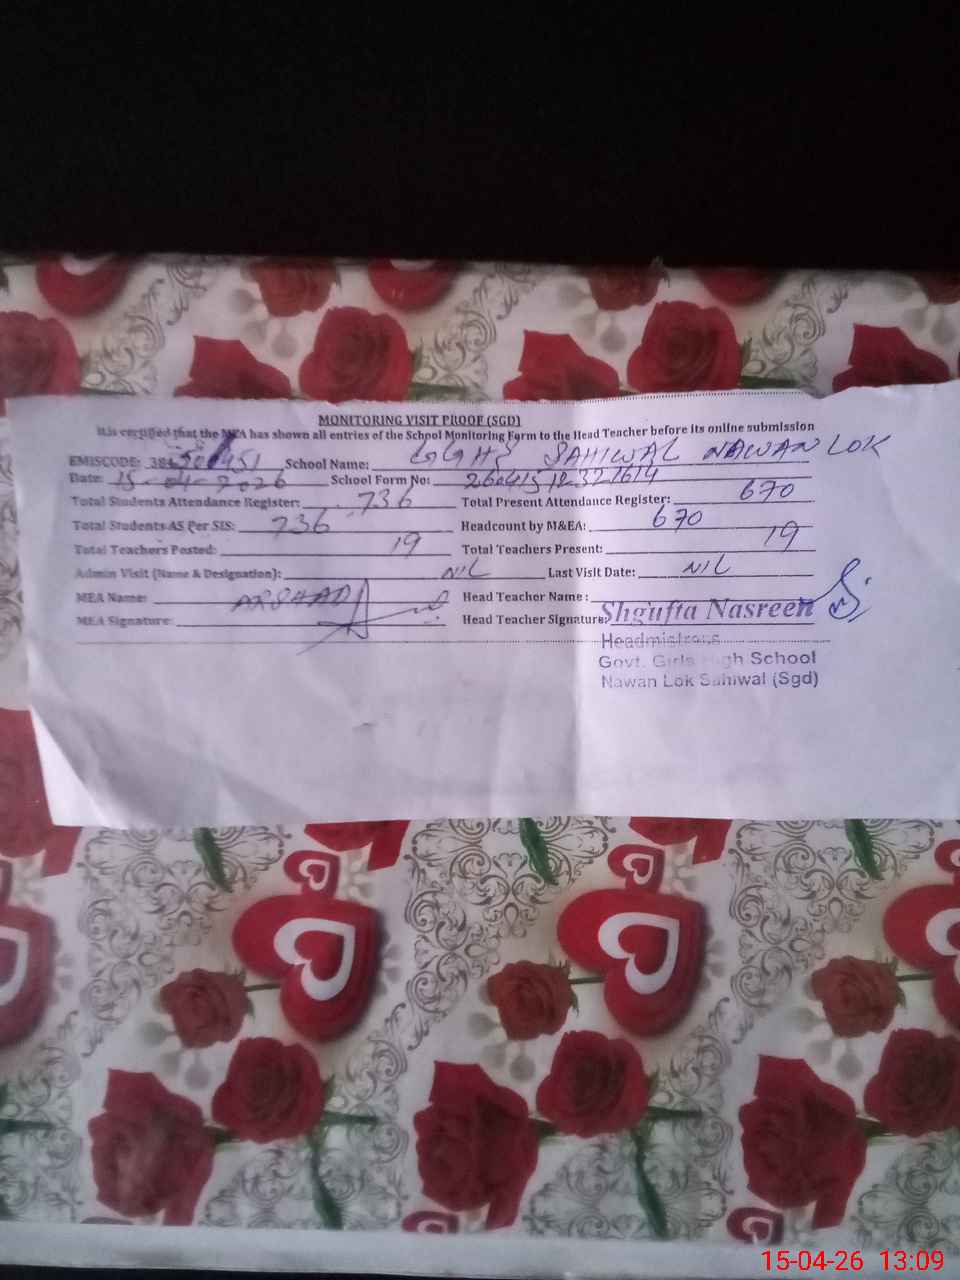 MONITORING VISIT PROOF (SGD)
It is certified that the MEA has shown all entries of the School Monitoring Form to the Head Teacher before its online submission
EMISCODE: School Name: GGHS SAHIWAL NAWAN LOK
Date: 15-04-2026 School Form No:
Total Students Attendance Register: 736 Total Present Attendance Register: 670
Total Students AS Per SIS: 736 Headcount by M&EA: 670
Total Teachers Posted: 19 Total Teachers Present: 19
Admin Visit (Name & Designation): NIL Last Visit Date: NIL
MEA Name: ARSHAD Head Teacher Name :
MEA Signature: Head Teacher Signature: Shgufta Nasreen
Headmistress
Govt. Girls High School
Nawan Lok Sahiwal (Sgd)
15-04-26 13:09